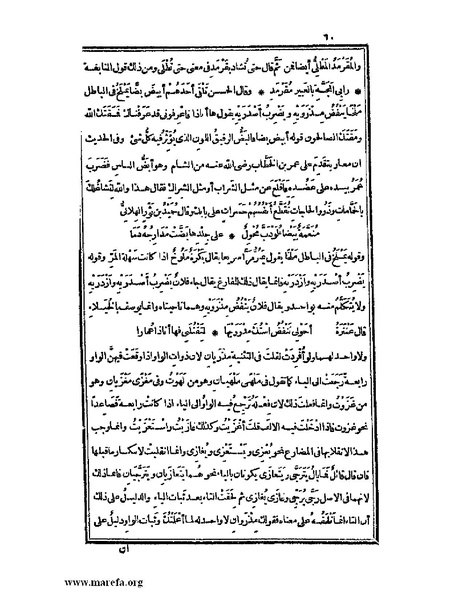 ٦٠
والمُقرمَدُ المطليُّ أيضا فمن ثم قال حتى تُشاد بقَرمَد في معنى حتى تُطلَى ومن ذلك قول النابغة
* رابي المَجَسَّةِ بالعبير مُقَرمَد * وقال الحسن تَلقى أحدَهم أبيضَ بضّا يَملَخُ في الباطل
مَلخا يَنفُض مِذرَوَيه ويضرب أسدَرَيه يقول ها أنا ذا فاعرفوني قد عرفناك فمَقَتَك اللهُ
ومَقَتَك الصالحون قوله أبيض بضا فالبَضُّ الرقيقُ اللون الذى يُؤثّرُ فيه كلُّ شئ وفى الحديث
ان معاوية قَدِم على عمر بن الخطّاب رضى الله عنه من الشام وهو أبَضُّ الناس فضَرَبَ
عُمرُ بيده على عَضُده فأقلَع عن مثل الشَّراب أو مثل الشراك فقال هذا والله لتَشاغُلك
بالحمّامات وذَوُو الحاجات تُقَطَّعُ أنفُسُهم حسراتٍ على بابك وقال حُمَيد بن ثَورٍ الهلالىُّ
مُنَعَّمَةٌ بَيضاءُ لو دَبَّ مُحوِلٌ * على جِلدِها بَضَّت مَدارِجُه دَما
وقوله يَملَخ فى الباطل مَلخا يقول يَمُرُّ مَرّا سريعا يقال بَكْرَةٌ مَلُوخٌ اذا كانت سهلة المَرّ وقوله
يَضرِبُ أسدَرَيه وأزدَرَيه وانما يقال ذلك للفارغ يقال جاء فلانٌ يَضرِبُ أسدَرَيه وأزدَرَيه
ولا يُتكلَّم منه بواحد ويقال فلانٌ يَنفُضُ مِذرَوَيه وهما ناحيتاه وانما يوصف بالخُيَلاء
قال عنترة أحَولى تَنفُضُ استُكَ مِذرَوَيها * لِتَقتُلَنى فها أنا ذا عُمارا
ولا واحد لهما ولو أُفرِدت لقلت فى التثنية مِذرَيان لان ذوات الواو اذا وَقَعَت فيهنّ الواو
رابعة رَجَعَت الى الياء كما تقول فى مَلهًى مَلهَيان وهو من لَهَوتُ وفى مَغزًى مَغزَيان وهو
من غزوتُ وانما فعلتَ ذلك لان فعله تَرجِع فيه الواو الى الياء اذا كانت رابعة فصاعدا
نحو غَزَوتُ فاذا أدخلتَ فيه الالف قلتَ أغزَيتُ وكذلك غازَيتُ واستَغزَيتُ وانما وجب
هذا الانقلابها فى المضارع نحو يُغزِى ويَستَغزِى ويُغازِى وانما انقلبت لانكسار ما قبلها
فان قال قائلٌ فما بالُ يَتَرَجَّى ويَتَغازَى يكونان بالياء نحو هما يَتَغازَيان ويَتَرَجَّيان فانما ذاك
لانهما فى الاصل رَجَّى يُرَجِّى وغازَى يُغازِى ثم لَحِقَت التاء بعد ثبات الياء والدليلُ على ذلك
أن التاء انما تلحقه على معناه فقولك مِذرَوان لا واحد له لما أعلمتُك وثبات الواو دليل على
ان
www.marefa.org